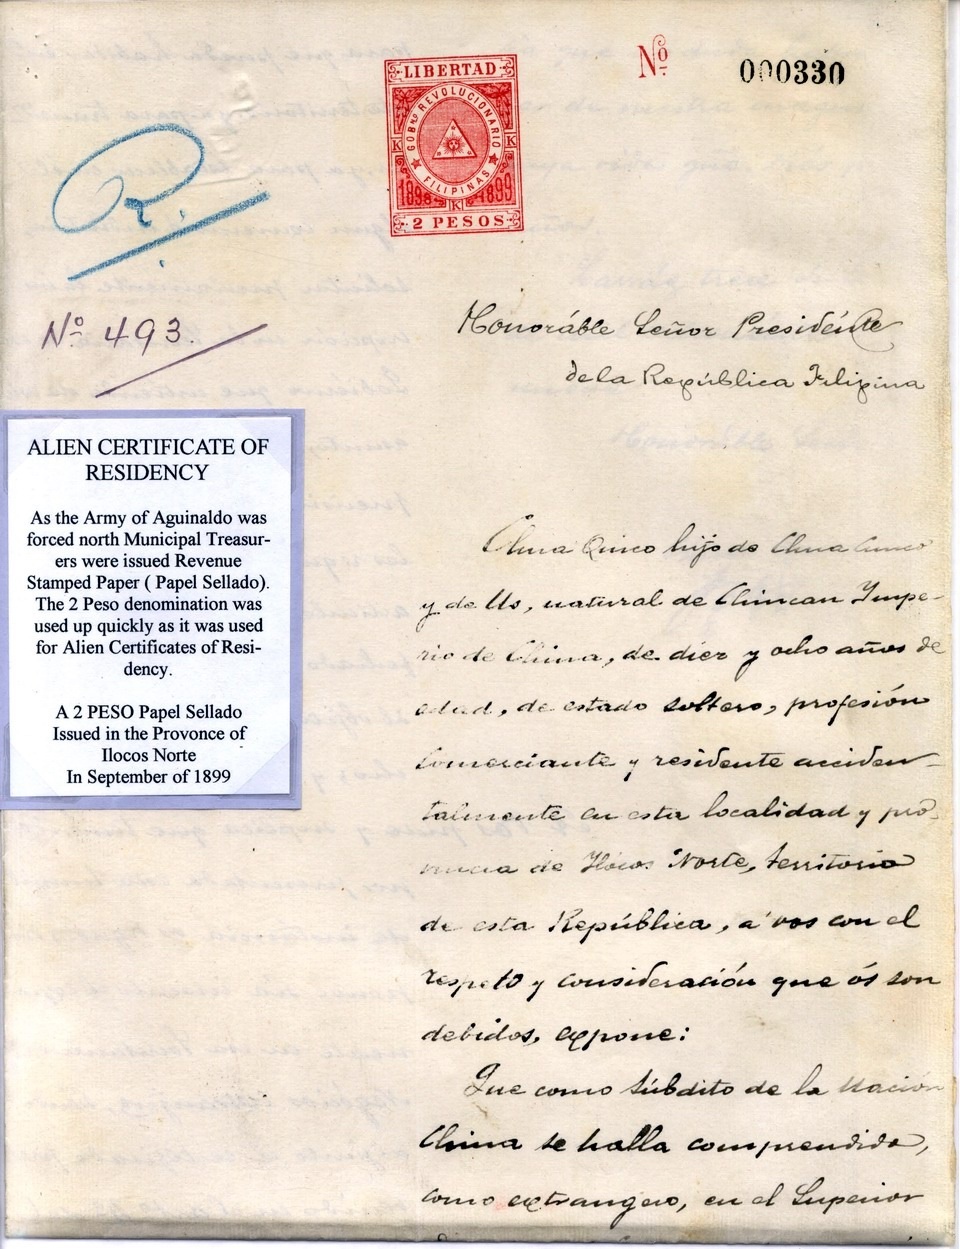 LIBERTAD
GOBNO REVOLUCIONARIO
FILIPINAS
K K
1898 K 1899
2 PESOS
No 000330
R.
No 493.
Honoráble Señor Presidénte
de la República Filipina
ALIEN CERTIFICATE OF
RESIDENCY
As the Army of Aguinaldo was
forced north Municipal Treasur-
ers were issued Revenue
Stamped Paper ( Papel Sellado).
The 2 Peso denomination was
used up quickly as it was used
for Alien Certificates of Resi-
dency.
A 2 PESO Papel Sellado
Issued in the Provonce of
Ilocos Norte
In September of 1899
Chua Quico hijo de Chua
y de Us, natural de Chincan Impe-
rio de China, de diez y ocho años de
edad, de estado soltero, profesión
comerciante y residente acciden-
talmente en esta localidad y pro-
vincia de Ilócos Norte, territorio
de esta República, á vos con el
respeto y consideración que ós son
debidos, expone:
Que como súbdito de la Nación
China se halla comprendido,
como extrangero, en el Superior